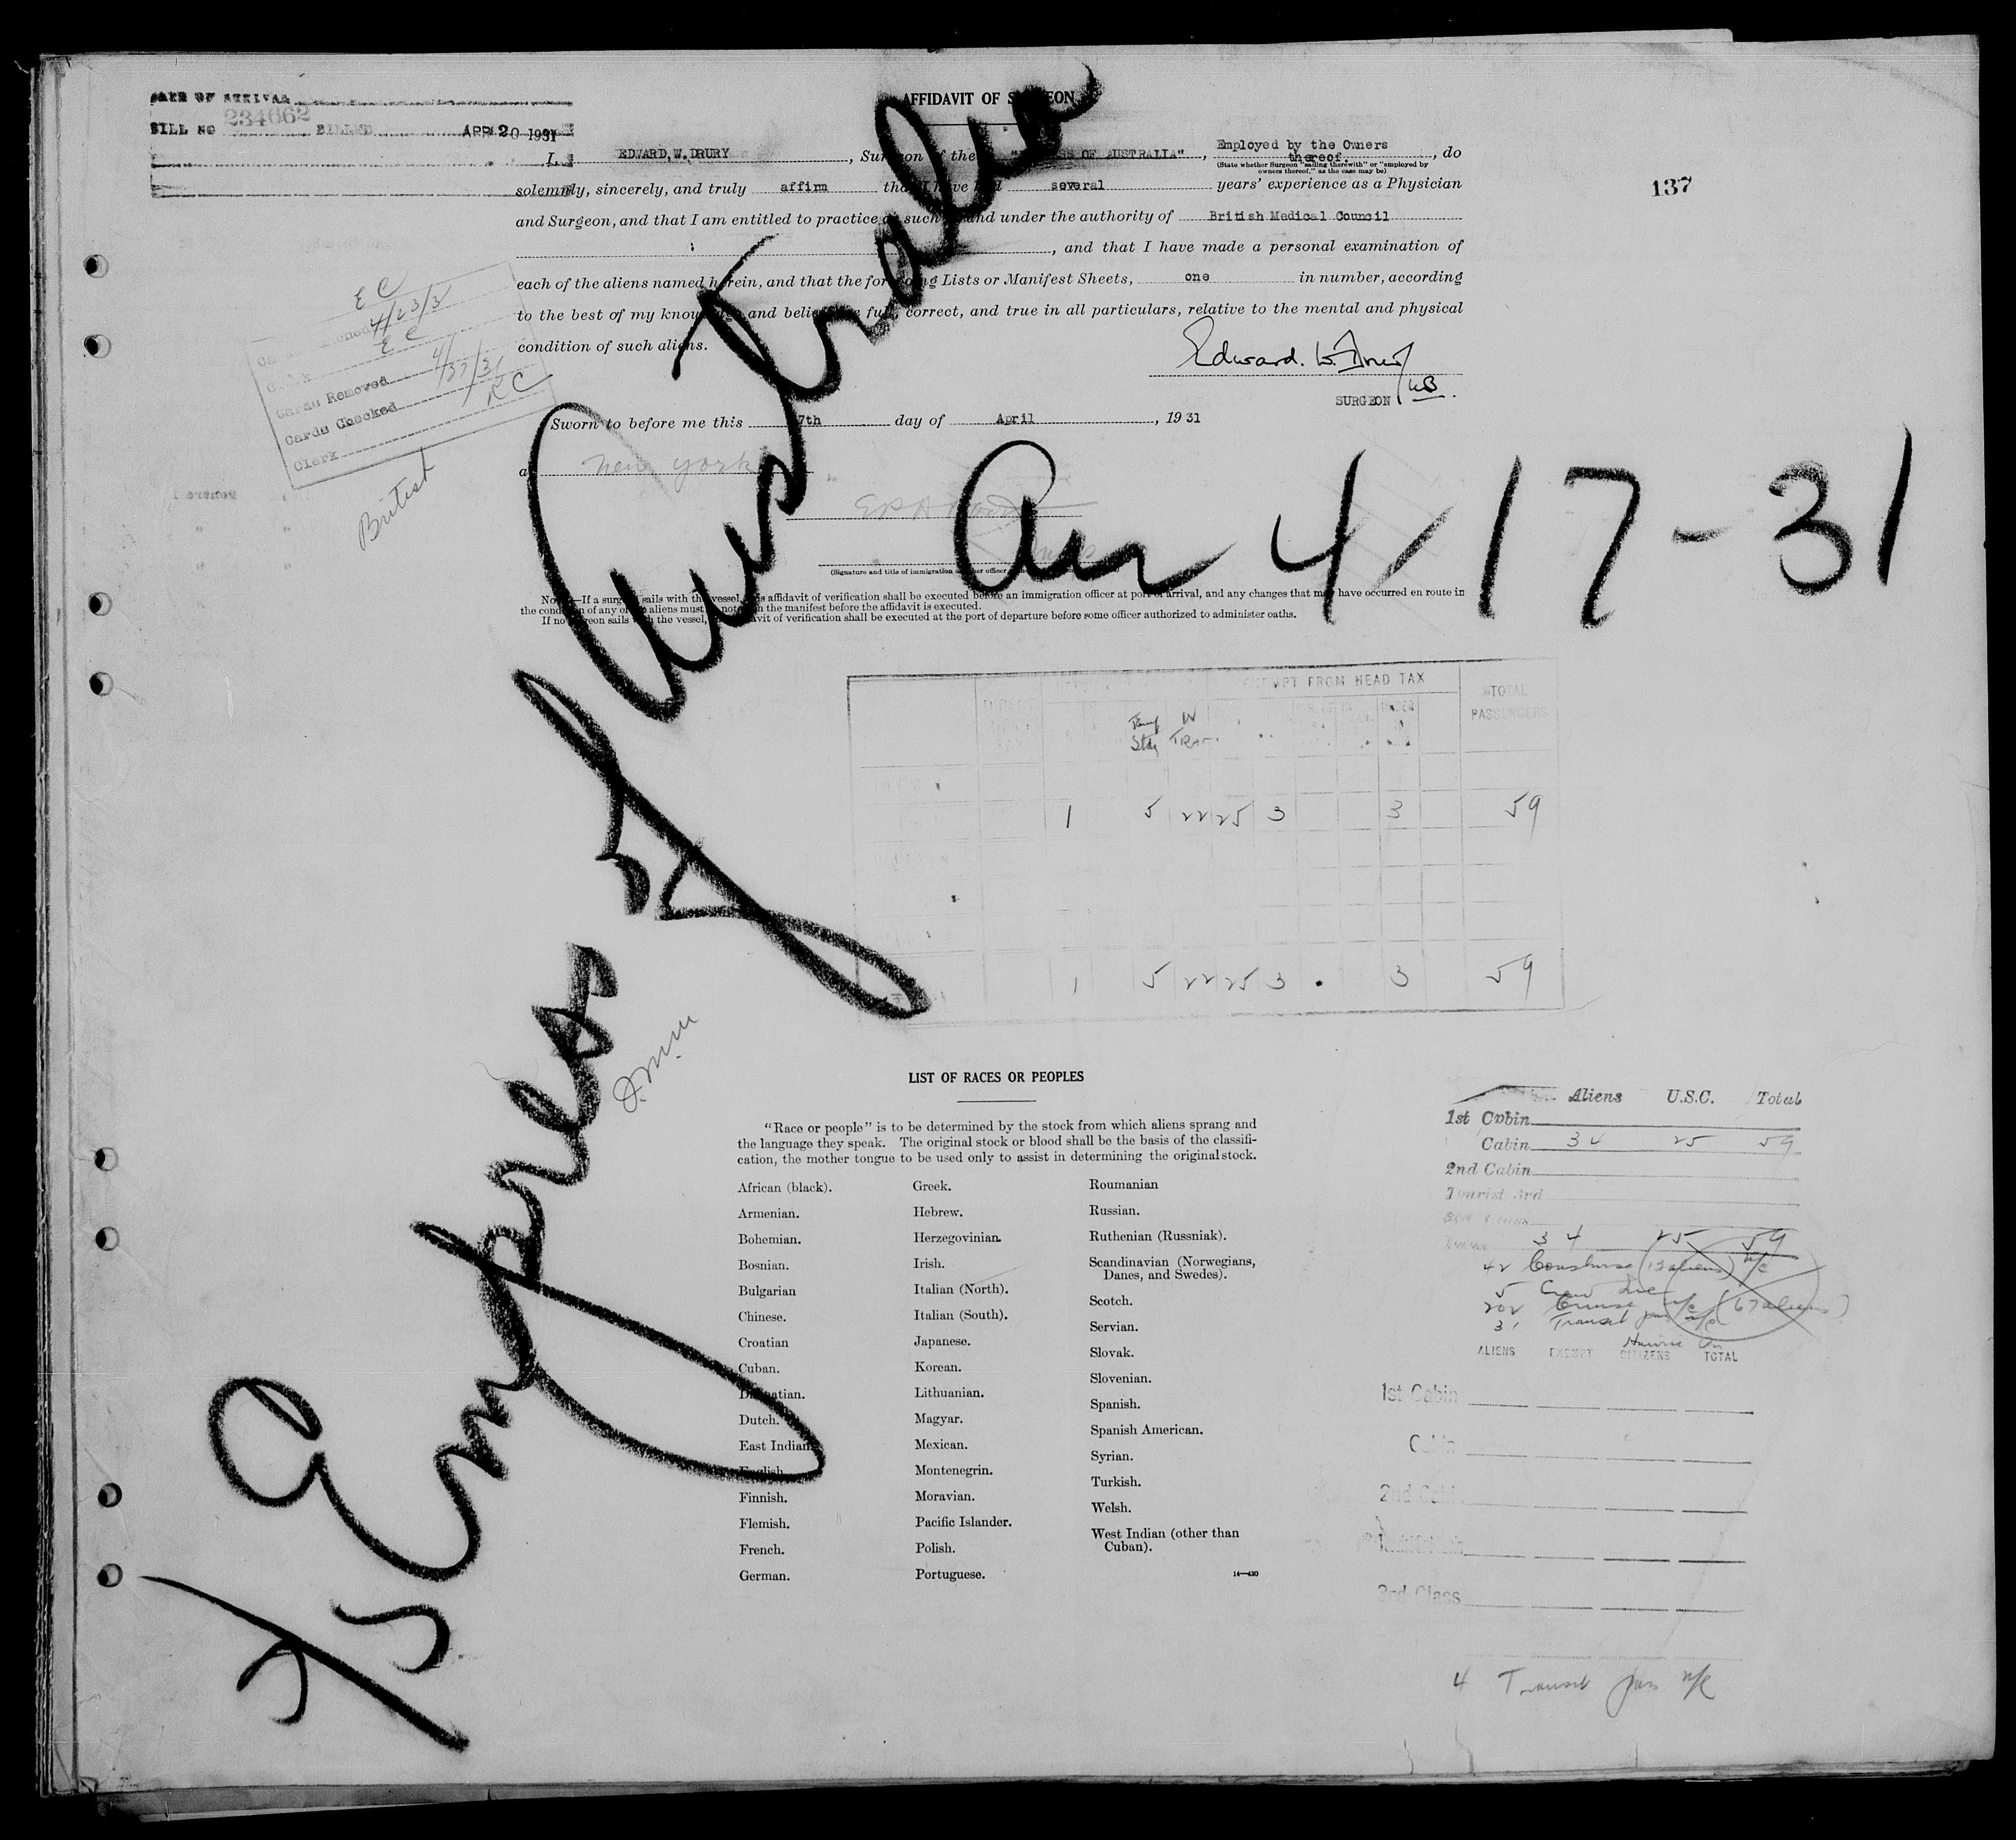 DATE OF ARRIVAL
BILL NO 234662 BILLED APR 20 1931
AFFIDAVIT OF SURGEON
137
I, EDWARD.W.DRURY, Surgeon of the "EMPRESS OF AUSTRALIA", Employed by the Owners thereof., do
(State whether Surgeon "sailing therewith" or "employed by owners thereof," as the case may be)
solemnly, sincerely, and truly affirm that I have had several years' experience as a Physician
and Surgeon, and that I am entitled to practice as such by and under the authority of British Medical Council
, and that I have made a personal examination of
each of the aliens named herein, and that the foregoing Lists or Manifest Sheets, one in number, according
to the best of my knowledge and belief, are full, correct, and true in all particulars, relative to the mental and physical
condition of such aliens.
Edward. W. Drury
SURGEON MB.
Sworn to before me this 17th day of April, 1931
at New York
(Signature and title of immigration or other officer
E C
4/23/31
E C
Cards Removed 4/27/31
Cards Checked E C
Clerk
British
S/S Empress of Australia
Arr 4/17-31
Note.—If a surgeon sails with the vessel, this affidavit of verification shall be executed before an immigration officer at port of arrival, and any changes that may have occurred en route in
the condition of any of the aliens must be noted on the manifest before the affidavit is executed.
If no surgeon sails with the vessel, the affidavit of verification shall be executed at the port of departure before some officer authorized to administer oaths.
EXEMPT FROM HEAD TAX
TOTAL PASSENGERS
UNDER
1 5 22 25 3 3 59
1 5 22 25 3 . 3 59
LIST OF RACES OR PEOPLES
"Race or people" is to be determined by the stock from which aliens sprang and
the language they speak. The original stock or blood shall be the basis of the classifi-
cation, the mother tongue to be used only to assist in determining the original stock.
African (black).
Armenian.
Bohemian.
Bosnian.
Bulgarian
Chinese.
Croatian
Cuban.
Dalmatian.
Dutch.
East Indian.
English.
Finnish.
Flemish.
French.
German.
Greek.
Hebrew.
Herzegovinian.
Irish.
Italian (North).
Italian (South).
Japanese.
Korean.
Lithuanian.
Magyar.
Mexican.
Montenegrin.
Moravian.
Pacific Islander.
Polish.
Portuguese.
Roumanian
Russian.
Ruthenian (Russniak).
Scandinavian (Norwegians,
Danes, and Swedes).
Scotch.
Servian.
Slovak.
Slovenian.
Spanish.
Spanish American.
Syrian.
Turkish.
Welsh.
West Indian (other than
Cuban).
14—430
Aliens U.S.C. Total
1st Cabin
Cabin 34 25 59
2nd Cabin
Tourist 3rd
34 25 59
5 Crew
202 Cruise n/c (67 aliens)
31 Transit pass n/c
ALIENS EXEMPT CITIZENS TOTAL
1st Cabin
Cabin
2nd Cabin
3rd Class
4 Transit pass n/c